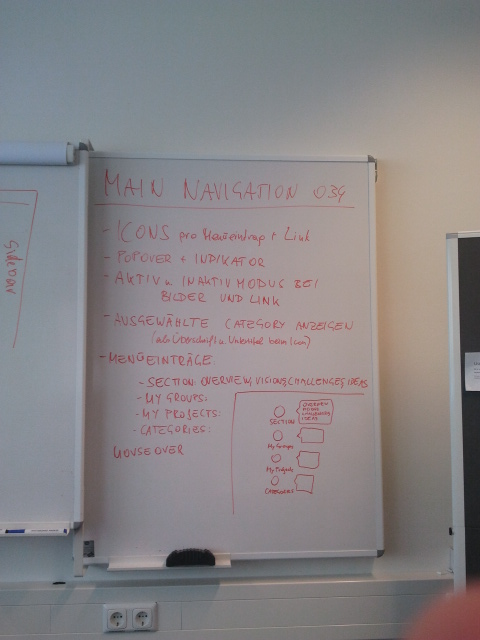 MAIN NAVIGATION 034
- ICONS pro Menüeintrag + Link
- POPOVER + INDIKATOR
- AKTIV u INAKTIV MODUS BEI
BILDER UND LINK
- AUSGEWÄHLTE CATEGORY ANZEIGEN
(als Überschrift u. Untertitel beim Icon)
- MENÜEINTRÄGE
- SECTION: OVERVIEW, VISIONS, CHALLENGES, IDEAS
- MY GROUPS:
- MY PROJECTS:
- CATEGORIES:
MOUSEOVER
OVERVIEW
VISIONS
CHALLENGES
IDEAS
SECTION
My Groups
My Projects
CATEGORIES
Sidebar